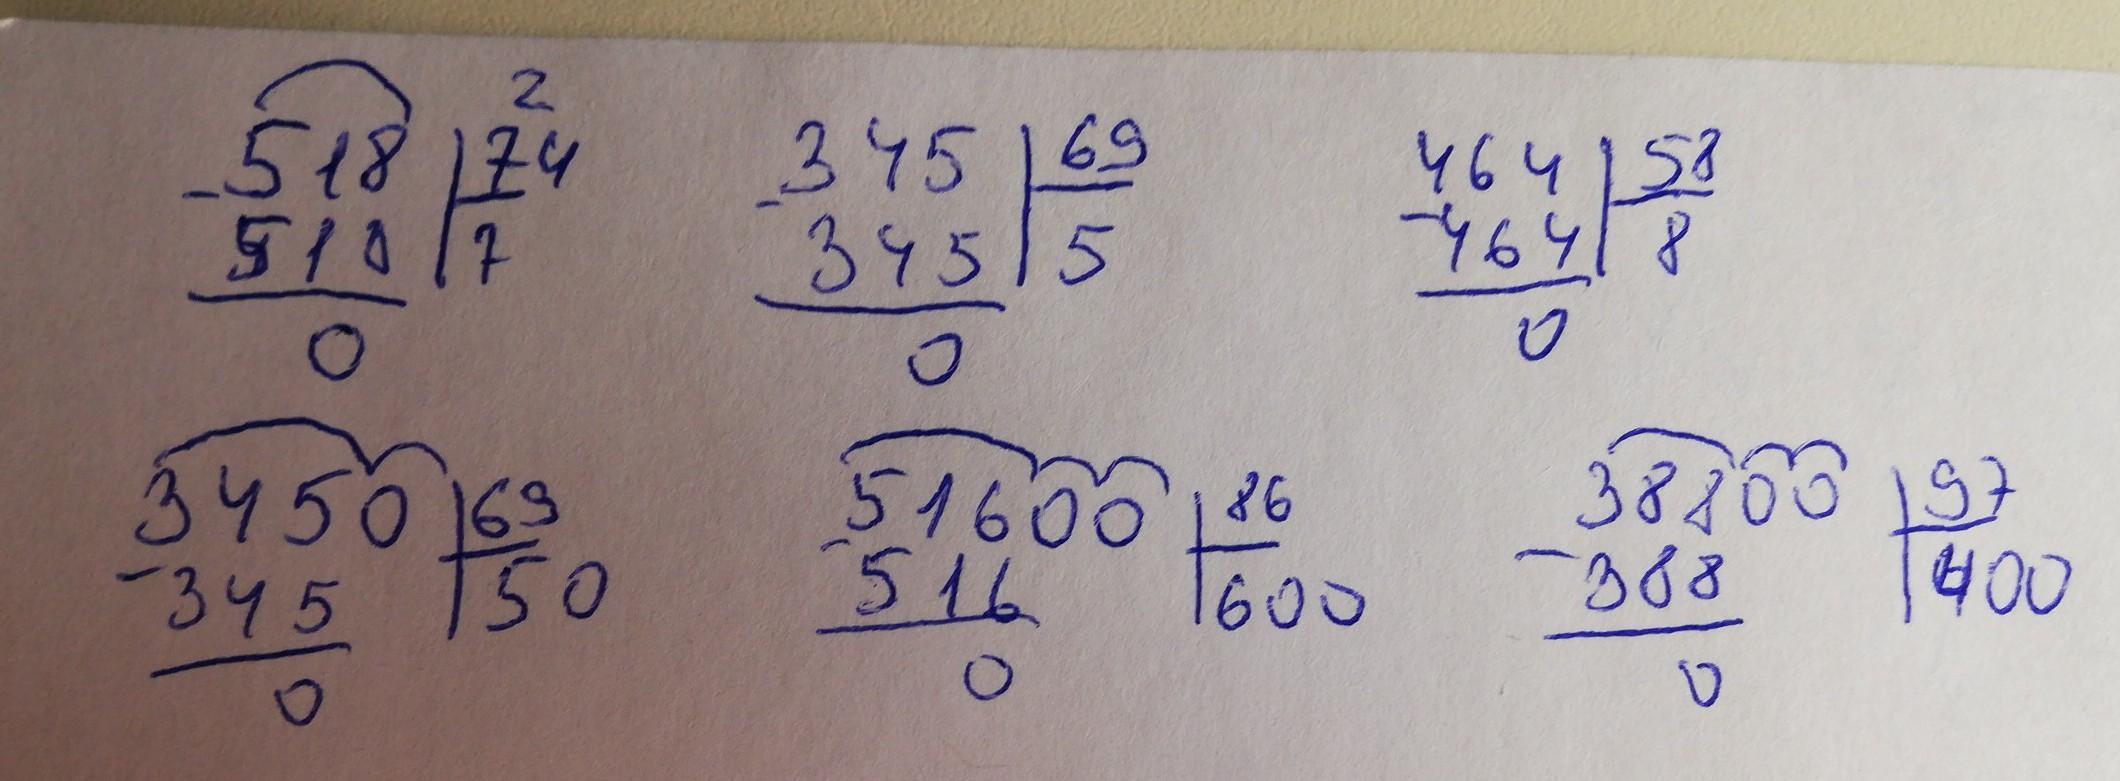 2
518 74 345 69 464 58
- 510 7 - 345 5 - 464 8
0 0 0
3450 69 51600 86 38800 97
- 345 50 - 516 600 - 388 400
0 0 0